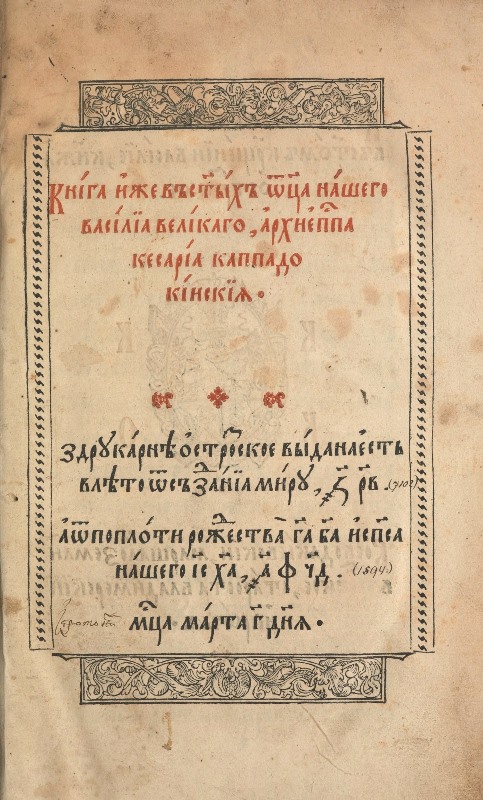 Кни́га и҆́же въ ст҃ы́хъ ѿц҃а на́шего
васи́лїа вели́каго, а҆рхїе҆пⷭ҇па
кесарі́а каппадо
кі́йскїѧ.
з друка́рнѣ ѻ҆стро́зское вы́дана єⷭ҇сть
в лѣ́то ѿ съз̾да́нїа ми́рꙋ, ҂з҃ р҃в (7102)
а҆ ѿ по пло́ти рожⷭ҇ества̀ гⷭ҇а бг҃а и҆ сп҃са
на́шего і҆с҃ х҃а, ҂а҃ ф҃ ч҃д. (1594)
мцⷭ҇а ма́рта г҃ днѧ̀.